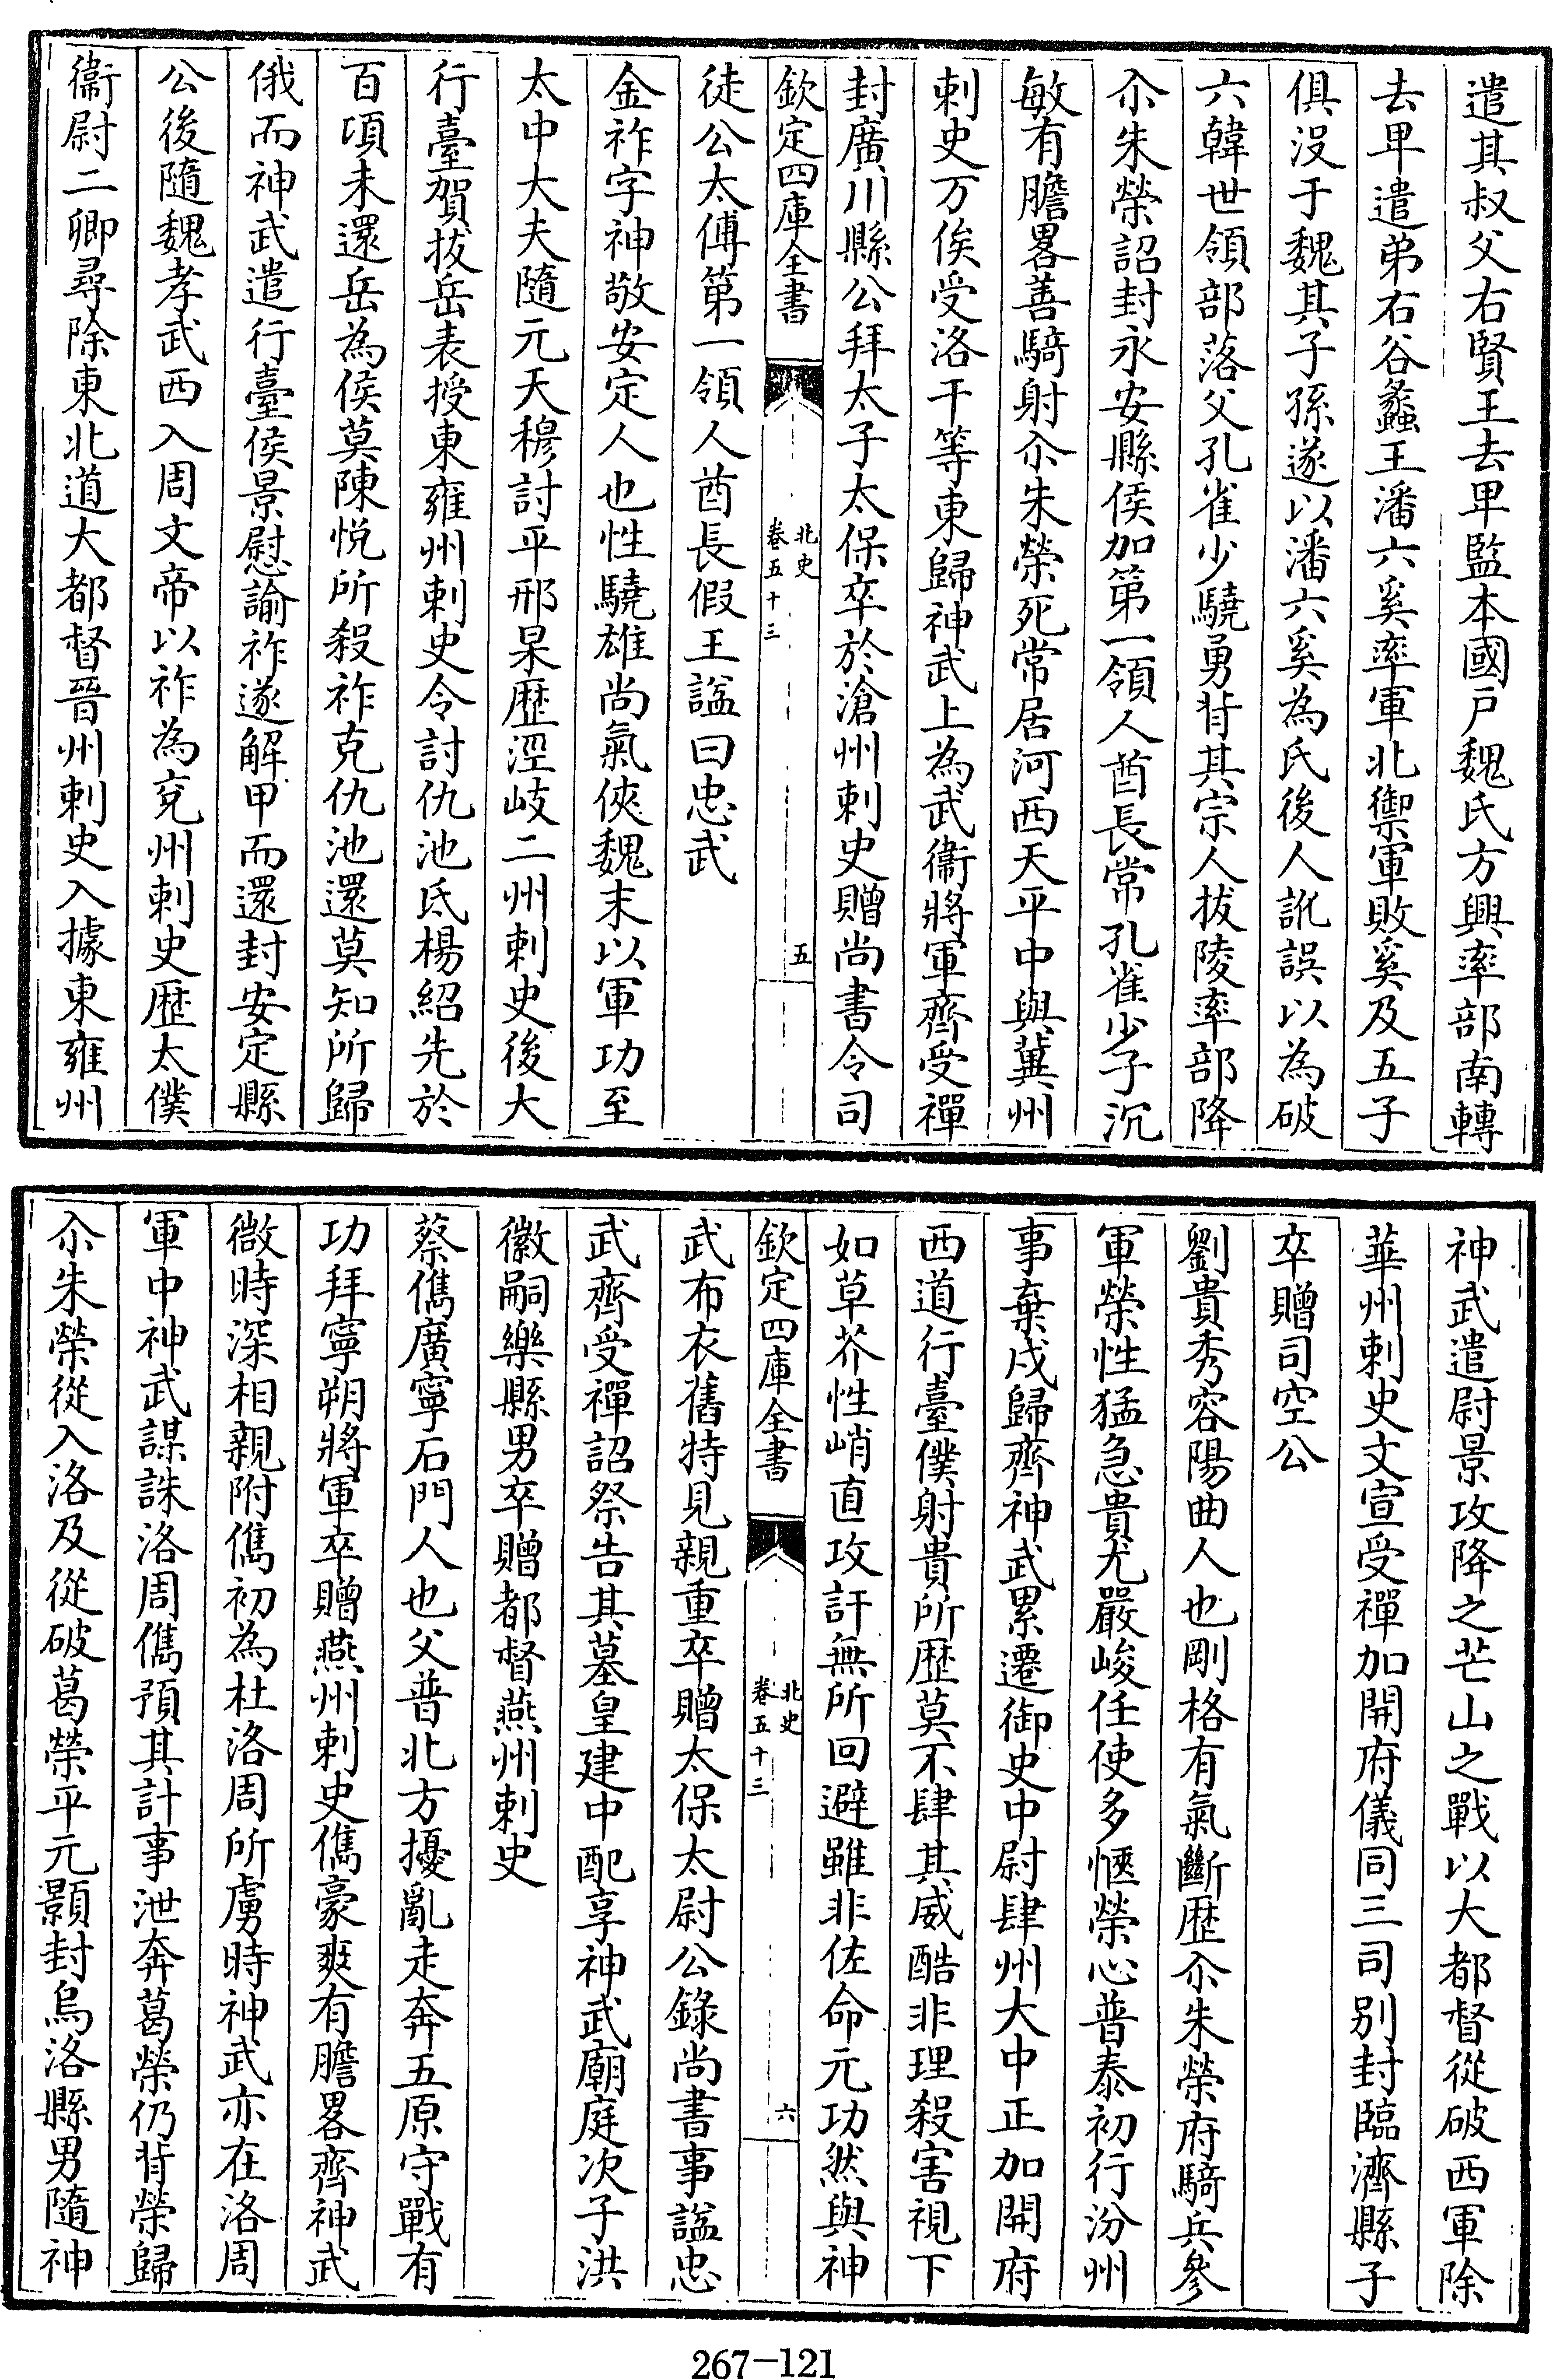 遣其叔父右賢王去卑監本國戸魏氏方興率部南轉
去卑遣弟右谷蠡王潘六奚率軍北禦軍敗奚及五子
俱沒于魏其子孫遂以潘六奚為氏後人訛誤以為破
六韓世領部落父孔雀少驍勇背其宗人拔陵率部降
尒朱榮詔封永安縣侯加第一領人酋長常孔雀少子沉
敏有膽畧善騎射尒朱榮死常居河西天平中與冀州
刺史万俟受洛干等東歸神武上為武衞將軍齊受禪
封廣川縣公拜太子太保卒於滄州刺史贈尚書令司
欽定四庫全書
北史
卷五十三
五
徒公太傅第一領人酋長假王諡曰忠武
金祚字神敬安定人也性驍雄尚氣俠魏末以軍功至
太中大夫隨元天穆討平邢杲歴涇岐二州刺史後大
行臺賀拔岳表授東雍州刺史令討仇池氐楊紹先於
百項未還岳為侯莫陳悦所殺祚克仇池還莫知所歸
俄而神武遣行臺侯景慰諭祚遂解甲而還封安定縣
公後隨魏孝武西入周文帝以祚為兗州刺史歴太僕
衞尉二卿尋除東北道大都督晉州刺史入據東雍州
神武遣尉景攻降之芒山之戰以大都督從破西軍除
華州刺史文宣受禪加開府儀同三司别封臨濟縣子
卒贈司空公
劉貴秀容陽曲人也剛格有氣斷歴尒朱榮府騎兵參
軍榮性猛急貴尤嚴峻任使多愜榮心普泰初行汾州
事棄戍歸齊神武累遷御史中尉肆州大中正加開府
西道行臺僕射貴所歴莫不肆其威酷非理殺害視下
如草芥性峭直攻訐無所回避雖非佐命元功然與神
欽定四庫全書
北史
卷五十三
六
武布衣舊特見親重卒贈太保太尉公錄尚書事諡忠
武齊受禪詔祭告其墓皇建中配享神武廟庭次子洪
徽嗣樂縣男卒贈都督燕州刺史
蔡儁廣寧石門人也父普北方擾亂走奔五原守戰有
功拜寧朔將軍卒贈燕州刺史儁豪爽有膽畧齊神武
微時深相親附儁初為杜洛周所虜時神武亦在洛周
軍中神武謀誅洛周儁預其計事泄奔葛榮仍背榮歸
尒朱榮從入洛及從破葛榮平元顥封烏洛縣男隨神
267-121